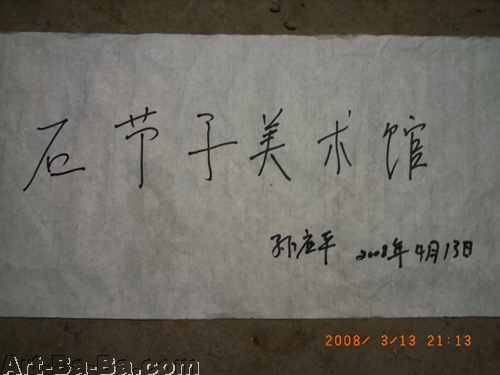 石节子美术馆
孙应平 2008年4月13日
2008/ 3/13 21:13
Art-Ba-Ba.com